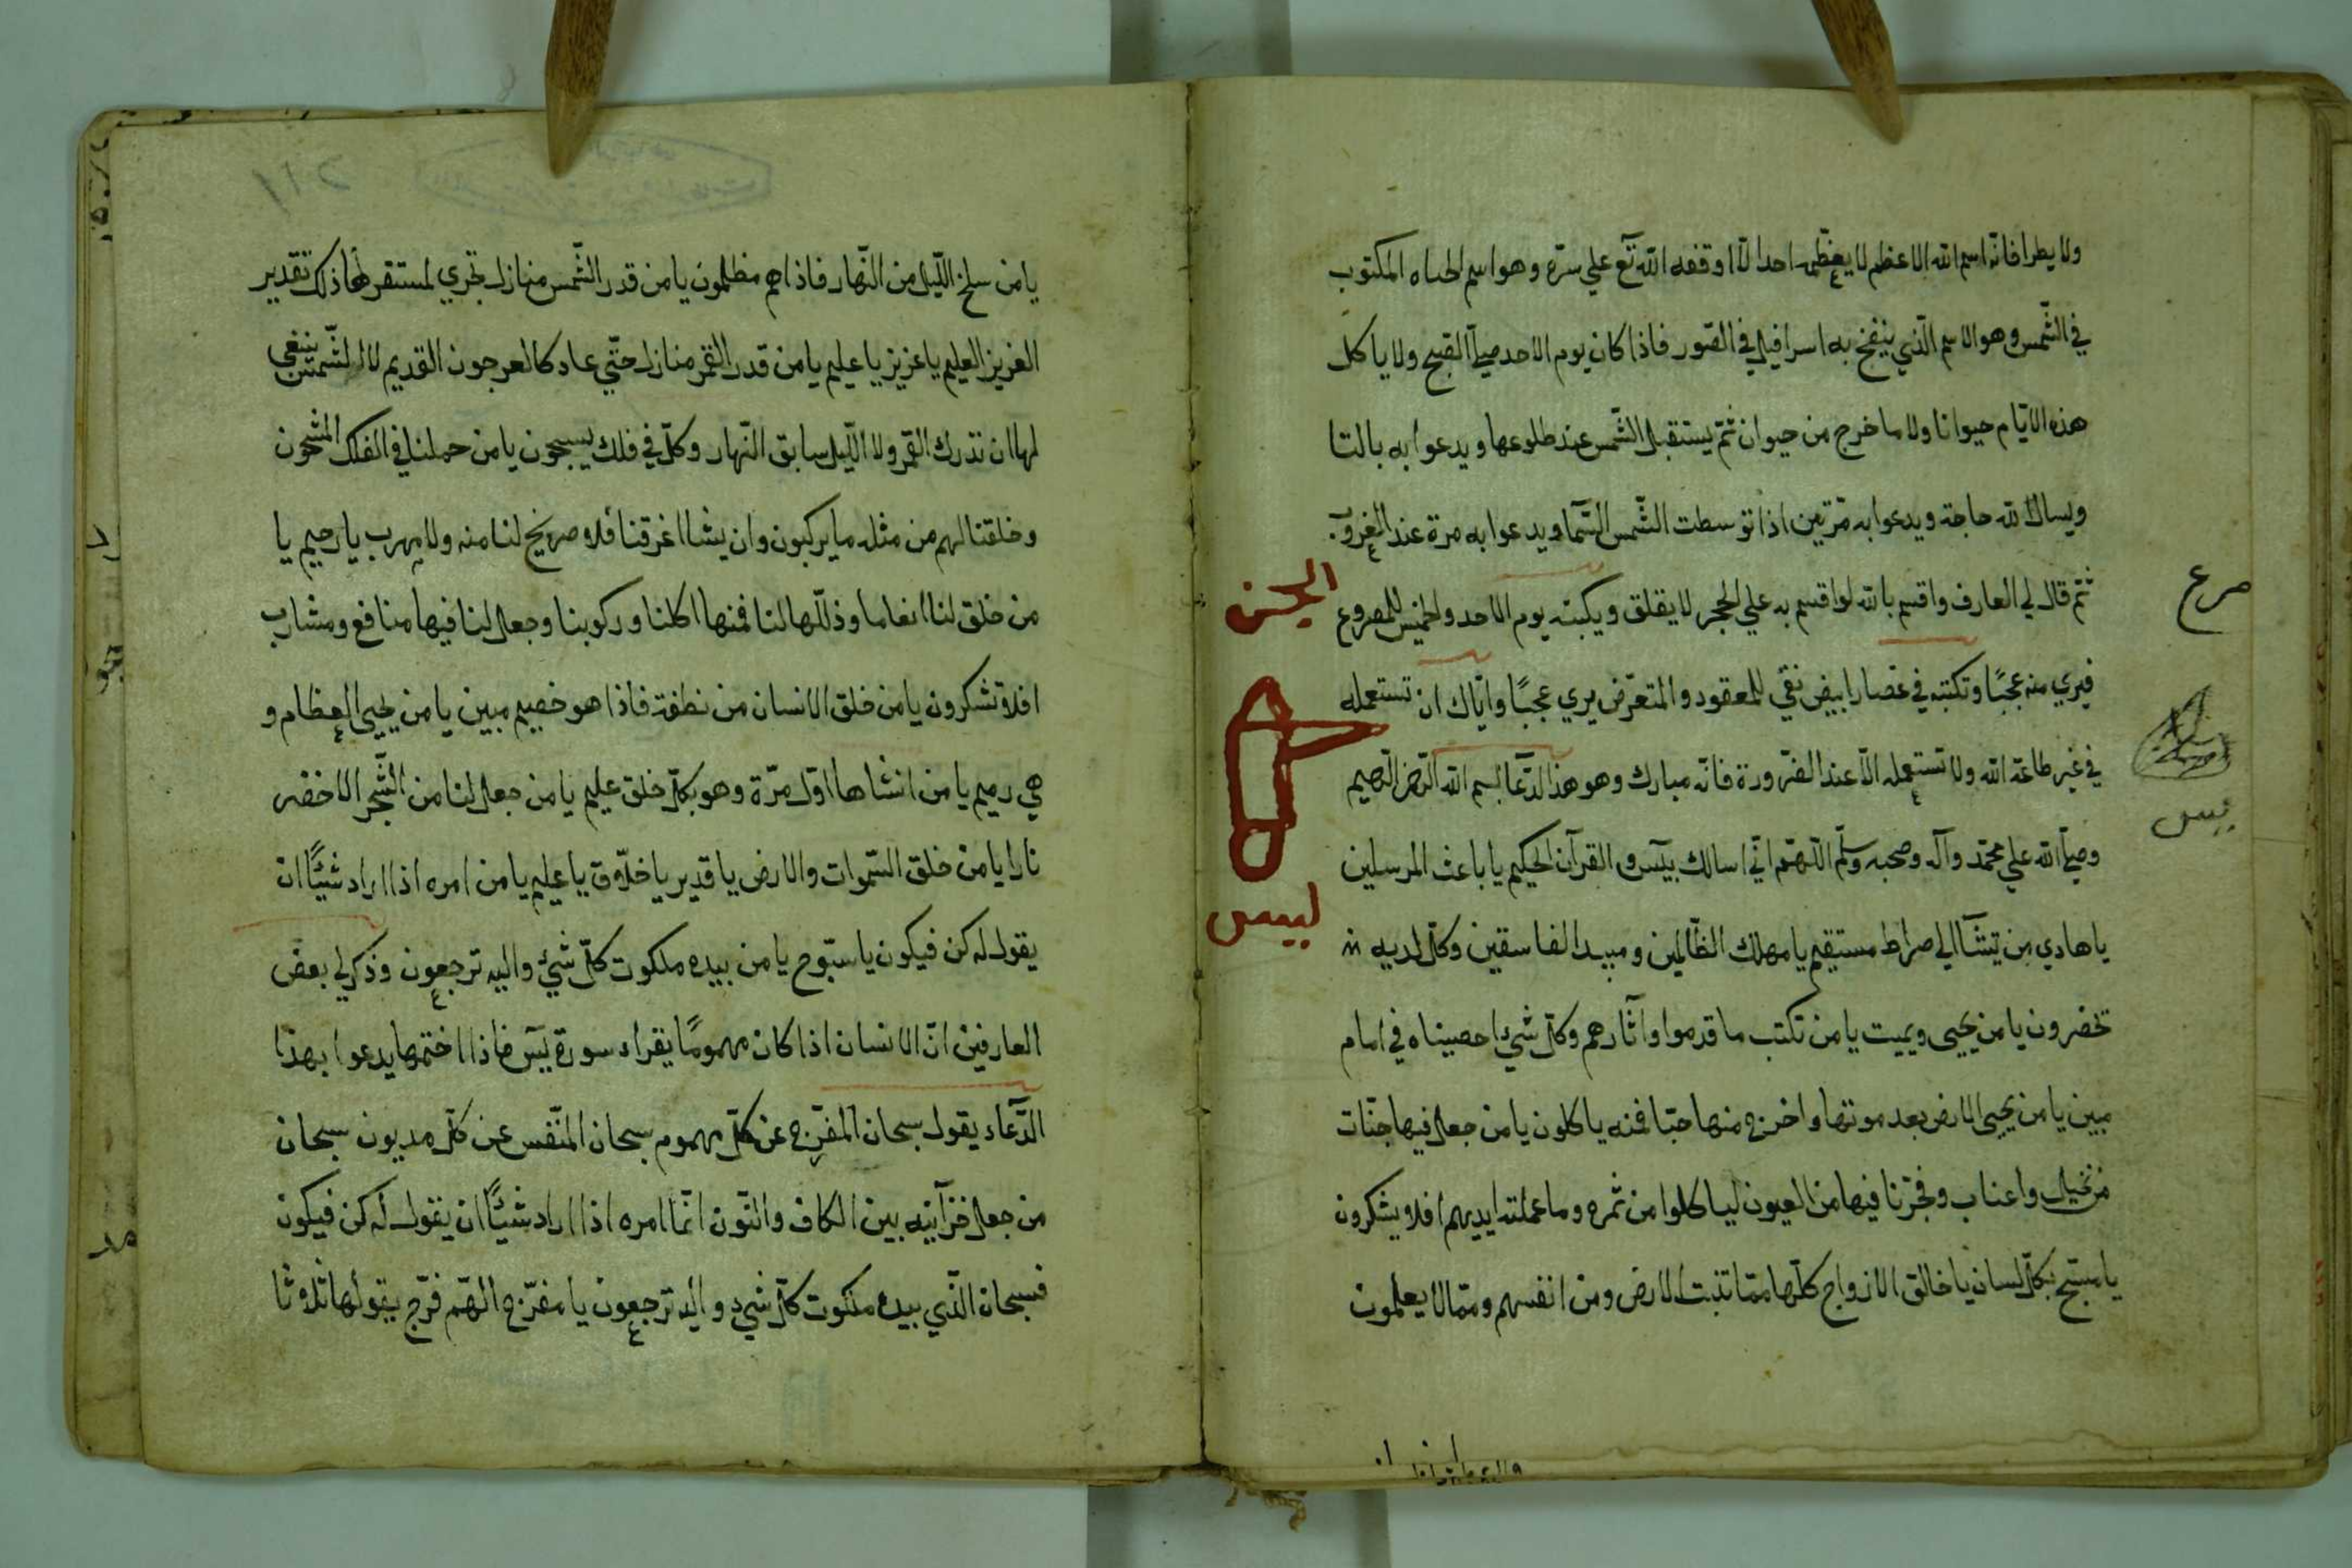 ولا يطرا فانه اسم الله الاعظم لا يعظمه احدا الّا اوقفه الله تع علي سرّه وهو اسم الحياه المكتوب
في الشّمس وهو الاسم الّذي ينفخ به اسرافيل في الصّور فاذا كان يوم الاحد صلّ الصبح ولا ياكل
هذه الايّام حيوانا ولا ما خرج من حيوان ثمّ يستقبل الشّمس عند طلوعها ويدعوا به بالتا
ويسال الله حاجة ويدعوا به مرّتين اذا توسطت الشّمس السّما ويدعوا به مرة عند الغروب
ثمّ قال لي العارف واقسم بالله لو اقسم به علي الحجر لا يقلق ويكتبه يوم الاحد والخميس للمصروع
فيري منه عجبًا وتكتبه في غضار ابيض نقي للمعقود والمتعرّض يري عجبًا وايّاك ان تستعمله
في غير طاعة الله ولا تستعمله الّا عند الضّرورة فانّه مبارك وهو هذا الدّعا بسم الله الرّحمن الرّحيم
وصلّي الله علي محمّد وآله وصحبه وسلّم اللّهمّ انّي اسالك بيس والقرآن الحكيم يا باعث المرسلين
يا هادي من تشآ الي صراط مستقيم يا مهلك الظّالمين ومبيد الفاسقين وكلّ لديه
تحضرون يا من يحيي ويميت يا من تكتب ما قدموا وآثارهم وكلّ شيء احصيناه في امام
مبين يا من يحيي الارض بعد موتها واخرج منها حبّا فمنه ياكلون يا من جعل فيها جنّات
من نخيل واعناب وفجّرنا فيها من العيون لياكلوا من ثمره وما عملته ايديهم افلا يشكرون
يا مسبّح بكلّ لسان يا خالق الازواج كلّها ممّا تنبت الارض ومن انفسهم وممّا لا يعلمون
صرع
يس
يا من سلخ اللّيل من النّهار فاذا هم مظلمون يا من قدر الشّمس منازل تجري لمستقر لها ذلك تقدير
العزيز العليم يا عزيز يا عليم يا من قدر القمر منازل حتّي عاد كالعرجون القديم لا الشّمس ينبغي
لها ان تدرك القمر ولا اللّيل سابق النّهار وكلّ في فلك يسبحون يا من حملنا في الفلك المشحون
وخلقنا لهم من مثله ما يركبون وان يشا اغرقنا فلا صريخ لنا منه ولا مهرب يا رحيم يا
من خلق لنا انعاما وذلّلها لنا فمنها اكلنا وركوبنا وجعل لنا فيها منافع ومشارب
افلا تشكرون يا من خلق الانسان من نطفة فاذا هو خصيم مبين يا من يحيي العظام و
هي رميم يا من انشاها اوّل مرّة وهو بكلّ خلق عليم يا من جعل لنا من الشّجر الاخضر
نارا يا من خلق السّموات والارض يا قدير يا خلّاق يا عليم يا من امره اذا اراد شيئًا ان
يقول له كن فيكون يا سبّوح يا من بيده ملكوت كلّ شيئ واليه ترجعون وذكر لي بعض
العارفين انّ الانسان اذا كان مهمومًا يقراء سورة يس فاذا اختمها يدعوا بهذا
الدّعاء يقول سبحان المفرّج عن كلّ مهموم سبحان المنّفس عن كلّ مديون سبحان
من جعل خزآينه بين الكاف والنّون انّما امره اذا اراد شيئًا ان يقول له كن فيكون
فسبحان الّذي بيده ملكوت كلّ شيء واليه ترجعون يا مفرّج الهّم فرّج يقولها ثلاثا